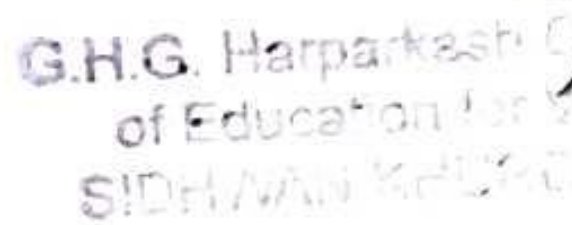 G.H.G. Harparkash C
of Education for
SIDHWAN KHURD